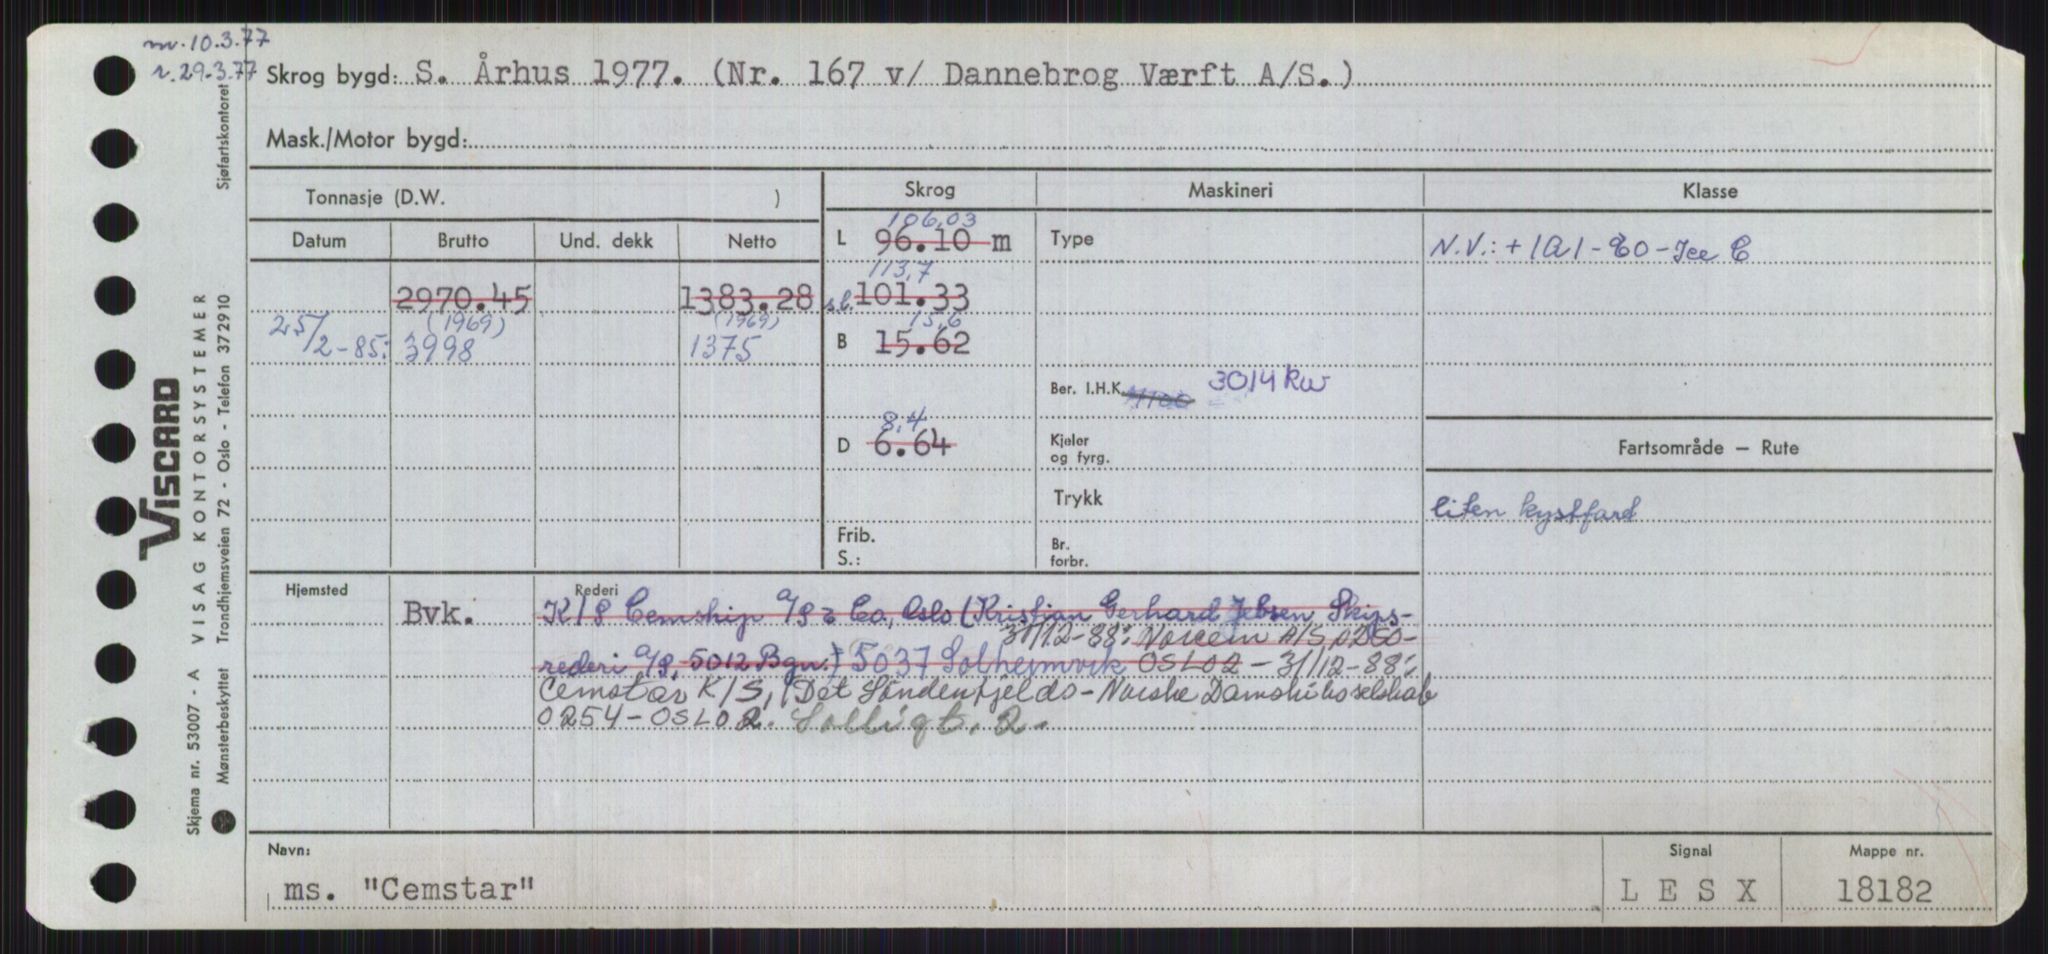 m. 10.3.77
r. 29.3.77
Skrog bygd: S. Århus 1977. (Nr. 167 v/ Dannebrog Værft A/S.)
Mask./Motor bygd:
Tonnasje (D.W. )
Skrog
Maskineri
Klasse
Datum
Brutto
Und. dekk
Netto
106,03
L 96.10 m
Type
N.V.: + 1A1 - E0 - Ice C
113,7
2970.45
1383.28
s.l. 101.33
(1969)
(1969)
15,6
25/2-85:
3998
1375
B 15.62
Ber. I.H.K. 4100 3014 kw
8,4
D 6.64
Kjeler
og fyrg.
Fartsområde — Rute
Trykk
liten kystfart
Frib.
S.:
Br.
forbr.
Hjemsted
Rederi
Bvk.
K/S Cemship A/S & Co, Oslo (Kristian Gerhard Jebsen Skips-
31/12-88: Norcem A/S, 0250-
rederi A/S, 5012 Bgn.) 5037 Solheimvik OSLO 2 - 31/12-88:
Cemstar K/S, (Det Søndenfjelds-Norske Dampskibsselskab
0254-OSLO 2. Solligt. 2.
Navn:
ms. "Cemstar"
Signal
LESX
Mappe nr.
18182
Sjøfartskontoret
VISCARD
Skjema nr. 53007 - A VISAG KONTORSYSTEMER
Mønsterbeskyttet Trondhjemsveien 72 - Oslo - Telefon 37 29 10